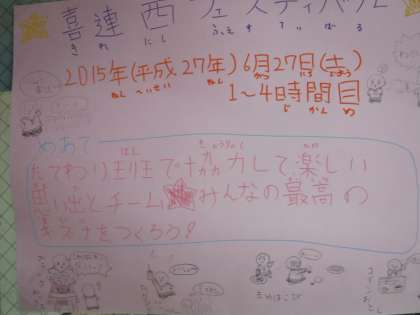 喜連西フェスティバル
きれ にし ふぇすてぃばる
2015年(平成27年)6月27日(土)
ねん へいせい ねん がつ にち
1~4時間目
じ かん め
めあて
たてわり班で協力して楽しい
はん きょうりょく たの
思い出とチーム★みんなの最高の
きずなをつくろう!
まめはこび